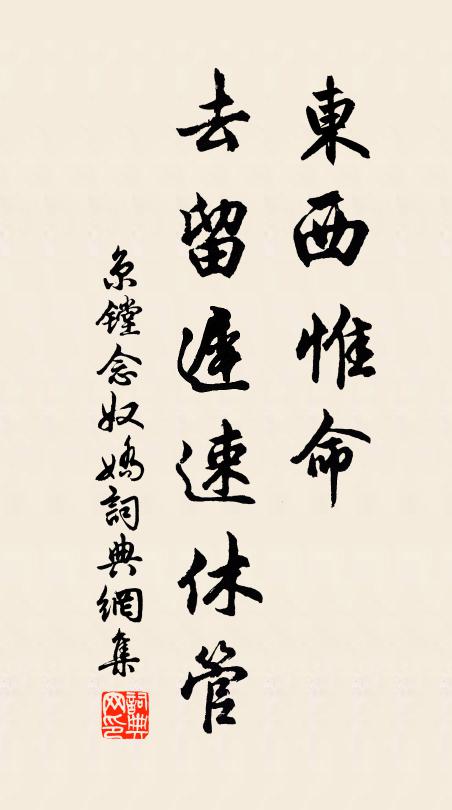 東西惟命
去留遲速休管
京鏜念奴嬌詞典網集
詞典
网印